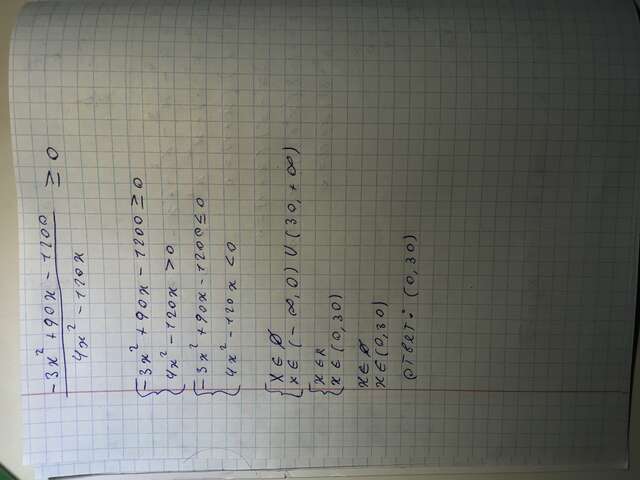 -3x² + 90x - 1200
4x² - 120x
≥ 0
{-3x² + 90x - 1200 ≥ 0
4x² - 120x > 0
{-3x² + 90x - 1200 ≤ 0
4x² - 120x < 0
{x ∈ ∅
x ∈ (-∞, 0) ∪ (30, +∞)
{x ∈ R
x ∈ (0, 30)
x ∈ ∅
x ∈ (0, 30)
ответ: (0, 30)